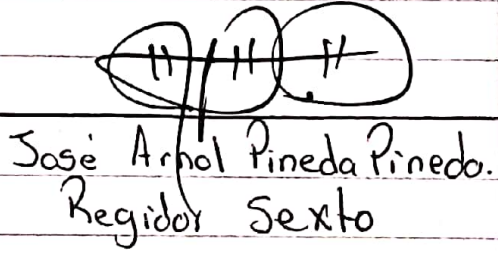 José Arnol Pineda Pinedo.
Regidor Sexto